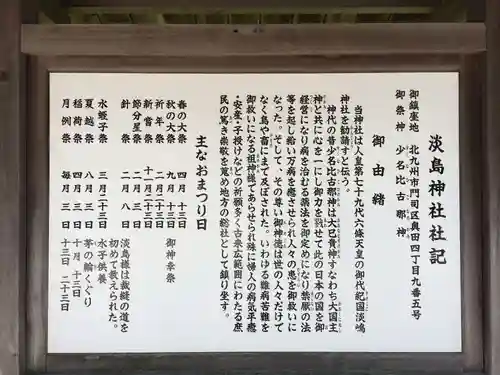 淡島神社社記
御鎮座地　北九州市門司区奥田四丁目九番五号
御祭神　少名比古那神
御由緒
当神社は人皇第七十九代六條天皇の御代紀国淡嶋
神社を勧請すと伝う。
神代の昔少名比古那神は大己貴神すなわち大国主
神と共に心を一にし御力を戮せて此の日本の国を御
経営になり病を治むる薬法を御定めになり禁厭の法
等を起し給い万病を癒させられ人々の患を御救いに
なった。そして、その尊い御神徳は世の人々だけで
なく鳥や畜にまで及ぼされた。いわゆる難病苦難を
御救いになる祖神様であらせられ殊に婦人の病気平癒
・安産・子授けなどの祈願多く古来広範囲にわたる庶
民の篤き崇敬を蒐め地方の総社として鎮り坐す。
主なおまつり日
春の大祭　四月　十三日
秋の大祭　九月　十三日　御神幸祭
祈年祭　二月二十三日
新嘗祭　十一月二十三日
節分星祭　二月　三日
針祭　二月　八日　淡島様は裁縫の道を
初めて教えられた。
水蛭子祭　三月二十三日　水子供養
夏越祭　七月三十日　茅の輪くぐり
稲荷祭　十月　十三日
月例祭　毎月　三日　十三日　二十三日